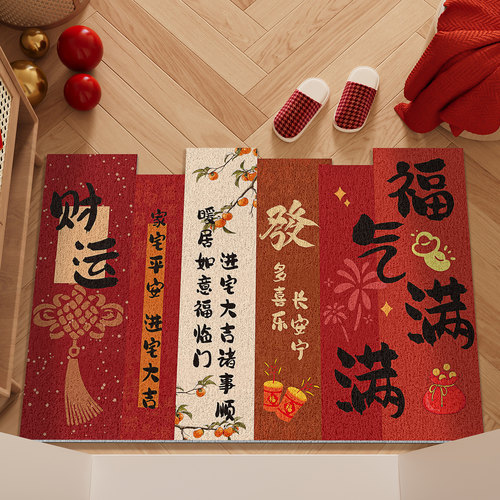 财运
家宅平安 进宅大吉
暖居如意福临门
进宅大吉诸事顺
發
多喜乐
长安宁
福气满满